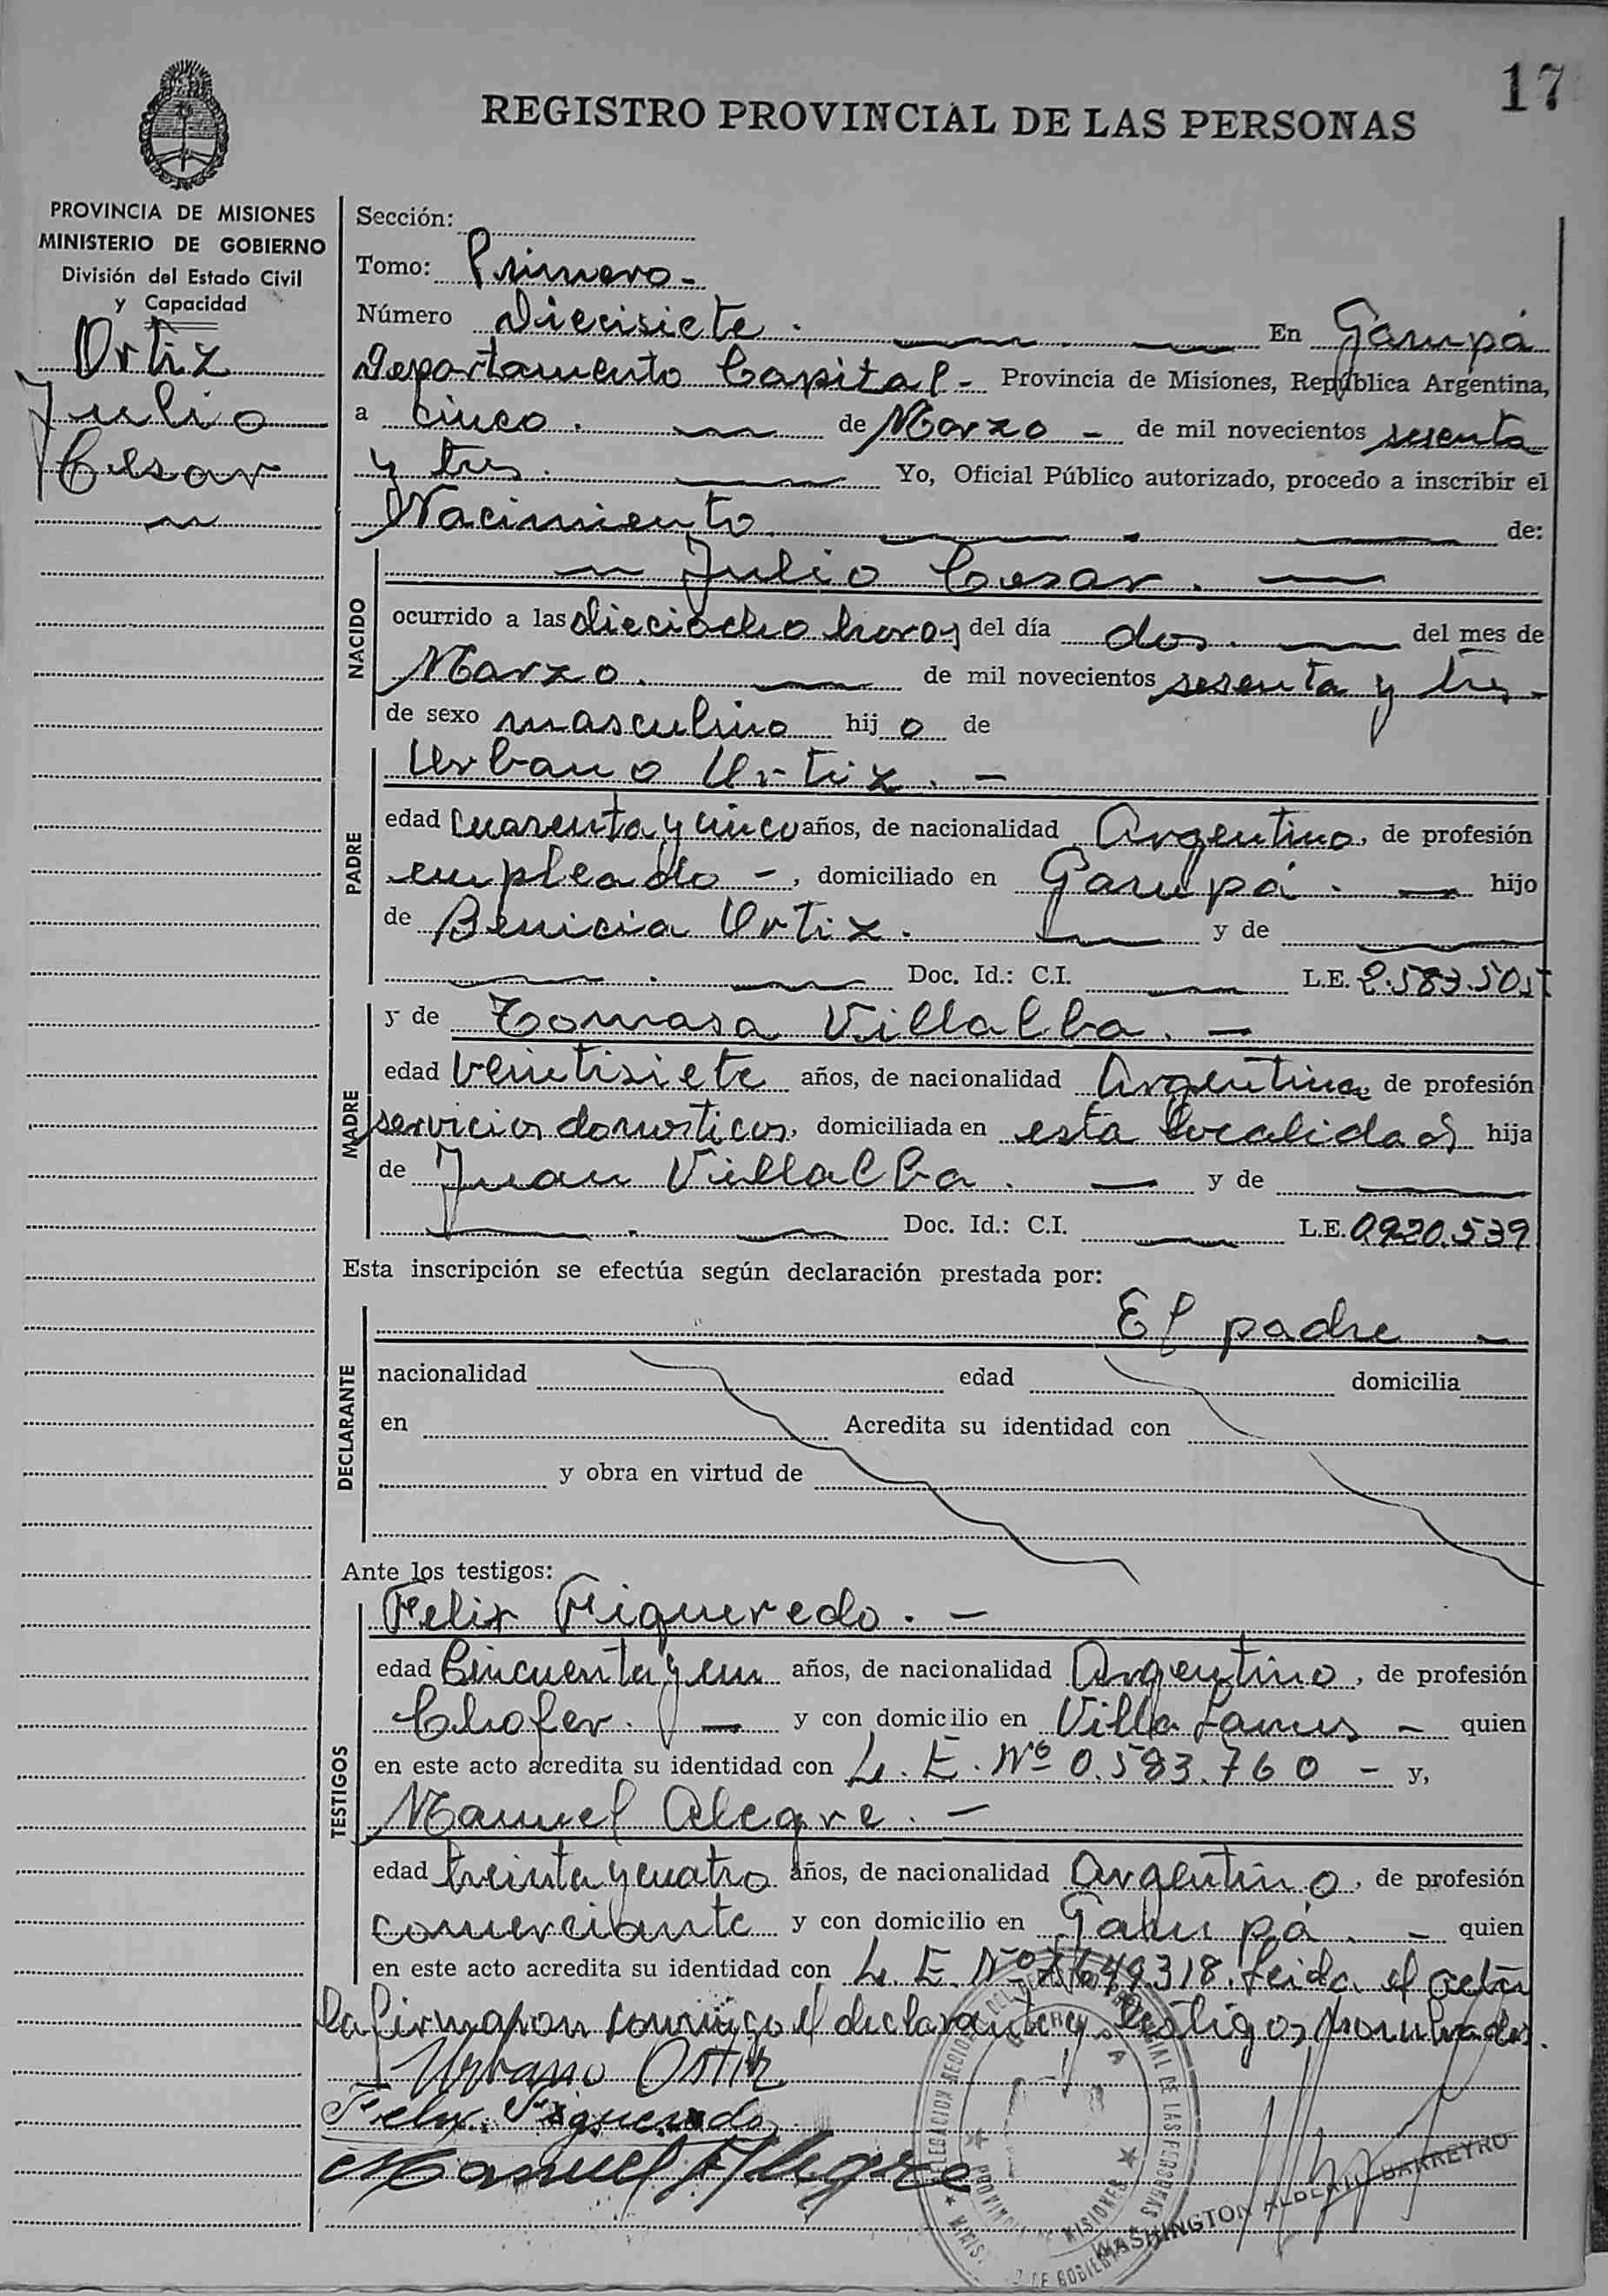 17
REGISTRO PROVINCIAL DE LAS PERSONAS
PROVINCIA DE MISIONES
MINISTERIO DE GOBIERNO
División del Estado Civil
y Capacidad
Ortiz
Julio
Cesar
Sección:
Tomo: Primero -
Número Diecisiete. En Garupá
Departamento Capital - Provincia de Misiones, República Argentina,
a cinco. de Marzo - de mil novecientos sesenta
y tres. Yo, Oficial Público autorizado, procedo a inscribir el
Nacimiento de:
NACIDO
Julio Cesar. —
ocurrido a las dieciocho horas del día dos. del mes de
Marzo. de mil novecientos sesenta y tres -
de sexo masculino hijo de
PADRE
Urbano Ortiz. -
edad cuarenta y cinco años, de nacionalidad Argentino, de profesión
empleado -, domiciliado en Garupá. — hijo
de Benicia Ortiz. — y de
Doc. Id.: C.I. — L.E. 2.583.505
MADRE
y de Tomasa Villalba. -
edad veintisiete años, de nacionalidad Argentina, de profesión
servicios domesticos, domiciliada en esta localidad hija
de Juan Villalba. — y de —
Doc. Id.: C.I. — L.E. 0920.539
Esta inscripción se efectúa según declaración prestada por:
DECLARANTE
El padre -
nacionalidad edad domicilia
en Acredita su identidad con
y obra en virtud de
Ante los testigos:
TESTIGOS
Felix Figueredo. -
edad Cincuenta y un años, de nacionalidad Argentino, de profesión
Chofer. — y con domicilio en Villa Lanus - quien
en este acto acredita su identidad con L. E. Nº 0.583.760 - y,
Manuel Alegre. -
edad treinta y cuatro años, de nacionalidad Argentino, de profesión
comerciante y con domicilio en Garupá. - quien
en este acto acredita su identidad con L. E. Nº 649318. Leida el acta
la firmaron conmigo el declarante y testigos nombrados.
Urbano Ortiz
Felix Figueredo
Manuel Alegre
WASHINGTON ALBERTO BARREYRO
PROVINCIAL DE LAS PERSONAS
MISIONES
DE GOBIERNO